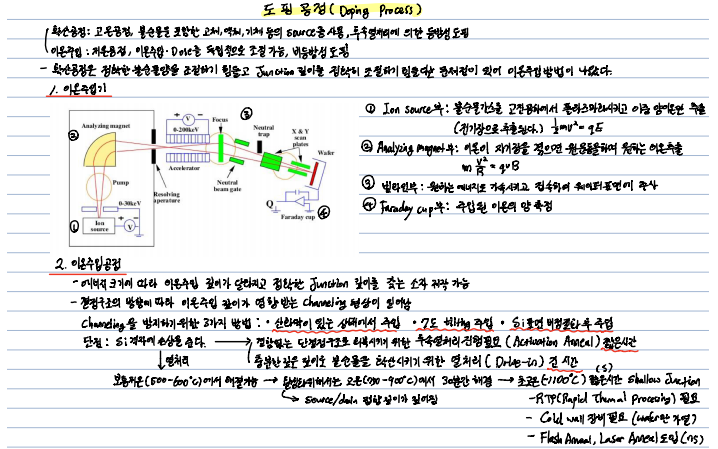 도핑 공정 ( Doping Process )
확산공정 : 고온공정, 불순물을 포함한 고체, 액체, 기체 등의 source를 사용, 후속열처리에 의한 등방성 도핑
이온주입 : 저온공정, 이온주입 · Dose를 독립적으로 조절 가능, 비등방성 도핑
- 확산공정은 정확한 불순물양을 조절하기 힘들고 Junction 깊이를 정확히 조절하기 힘들다는 문제점이 있어 이온주입 방법이 나왔다.
1. 이온주입기
Analyzing magnet
②
Pump
0-30keV
V
①
Ion source
Resolving aperature
V
0-200keV
Accelerator
Focus
③
Neutral beam gate
Neutral trap
X & Y scan plates
Wafer
Q
Faraday cup
④
① Ion source부 : 불순물가스를 고진공하에서 플라즈마화시키고 이중 양이온만 추출
(전기장으로 추출된다.) ½mv² = qE
② Analyzing magnet부 : 이온이 자기장을 겪으면 원운동을하여 원하는 이온추출
m v²/R = qvB
③ 빔라인부 : 원하는 에너지로 가속시키고 집속하여 웨이퍼표면에 주사
④ Faraday cup부 : 주입된 이온의 양 측정
2. 이온주입공정
- 에너지 크기에 따라 이온주입 깊이가 달라지고 정확한 Junction 깊이를 갖는 소자 제작 가능
- 결정구조의 방향에 따라 이온주입 깊이가 영향 받는 Channeling 현상이 일어남
Channeling을 방지하기위한 3가지 방법 : · 산화막이 있는 상태에서 주입 · 7도 tilting 주입 · Si표면 비정질화 후 주입
단점 : Si격자에 손상을 준다. → 결함없는 단결정구조로 회복시키기 위한 후속열처리 진행필요 (Activation Anneal) 짧은시간
↓ 열처리
충분한 깊은 깊이로 불순물을 확산시키기 위한 열처리 ( Drive-in ) 긴 시간
보통저온(500-600°C)에서 해결가능 → 고온(-900°C)에서 30분간 해결 → 초고온(~1100°C) 짧은시간(s) shallow Junction
↳ source/drain 접합 깊이가 깊어짐
- RTP(Rapid Thermal Processing) 필요
- Cold wall 장비 필요 (wafer만 가열)
- Flash Anneal, Laser Anneal 도입 (ns)